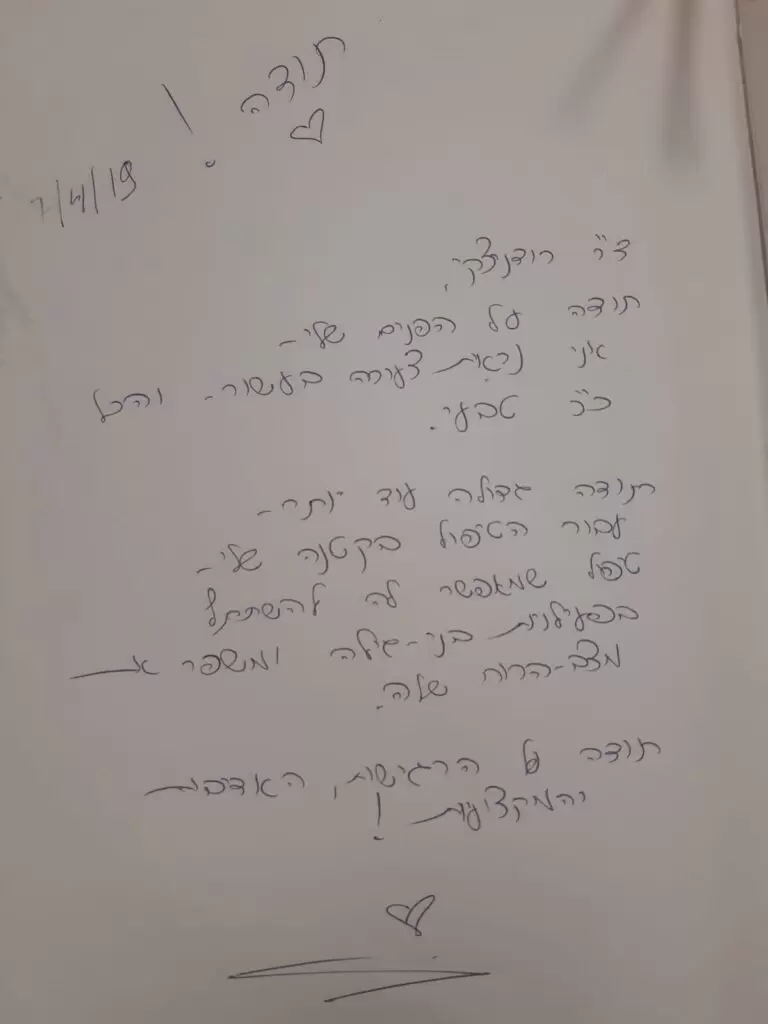 תודה!
7/4/19
ד"ר רודניצקי,
תודה על הפנים שלי -
אני נראית צעירה בעשור - והכל
כ"כ טבעי.
תודה גדולה עוד יותר -
עבור הטיפול בקטנה שלי -
טיפול שמאפשר לה להשתתף
בפעילות בני-גילה ומשפר את
מצב-הרוח שלה.
תודה על הרגישות, האדיבות
והמקצועיות!